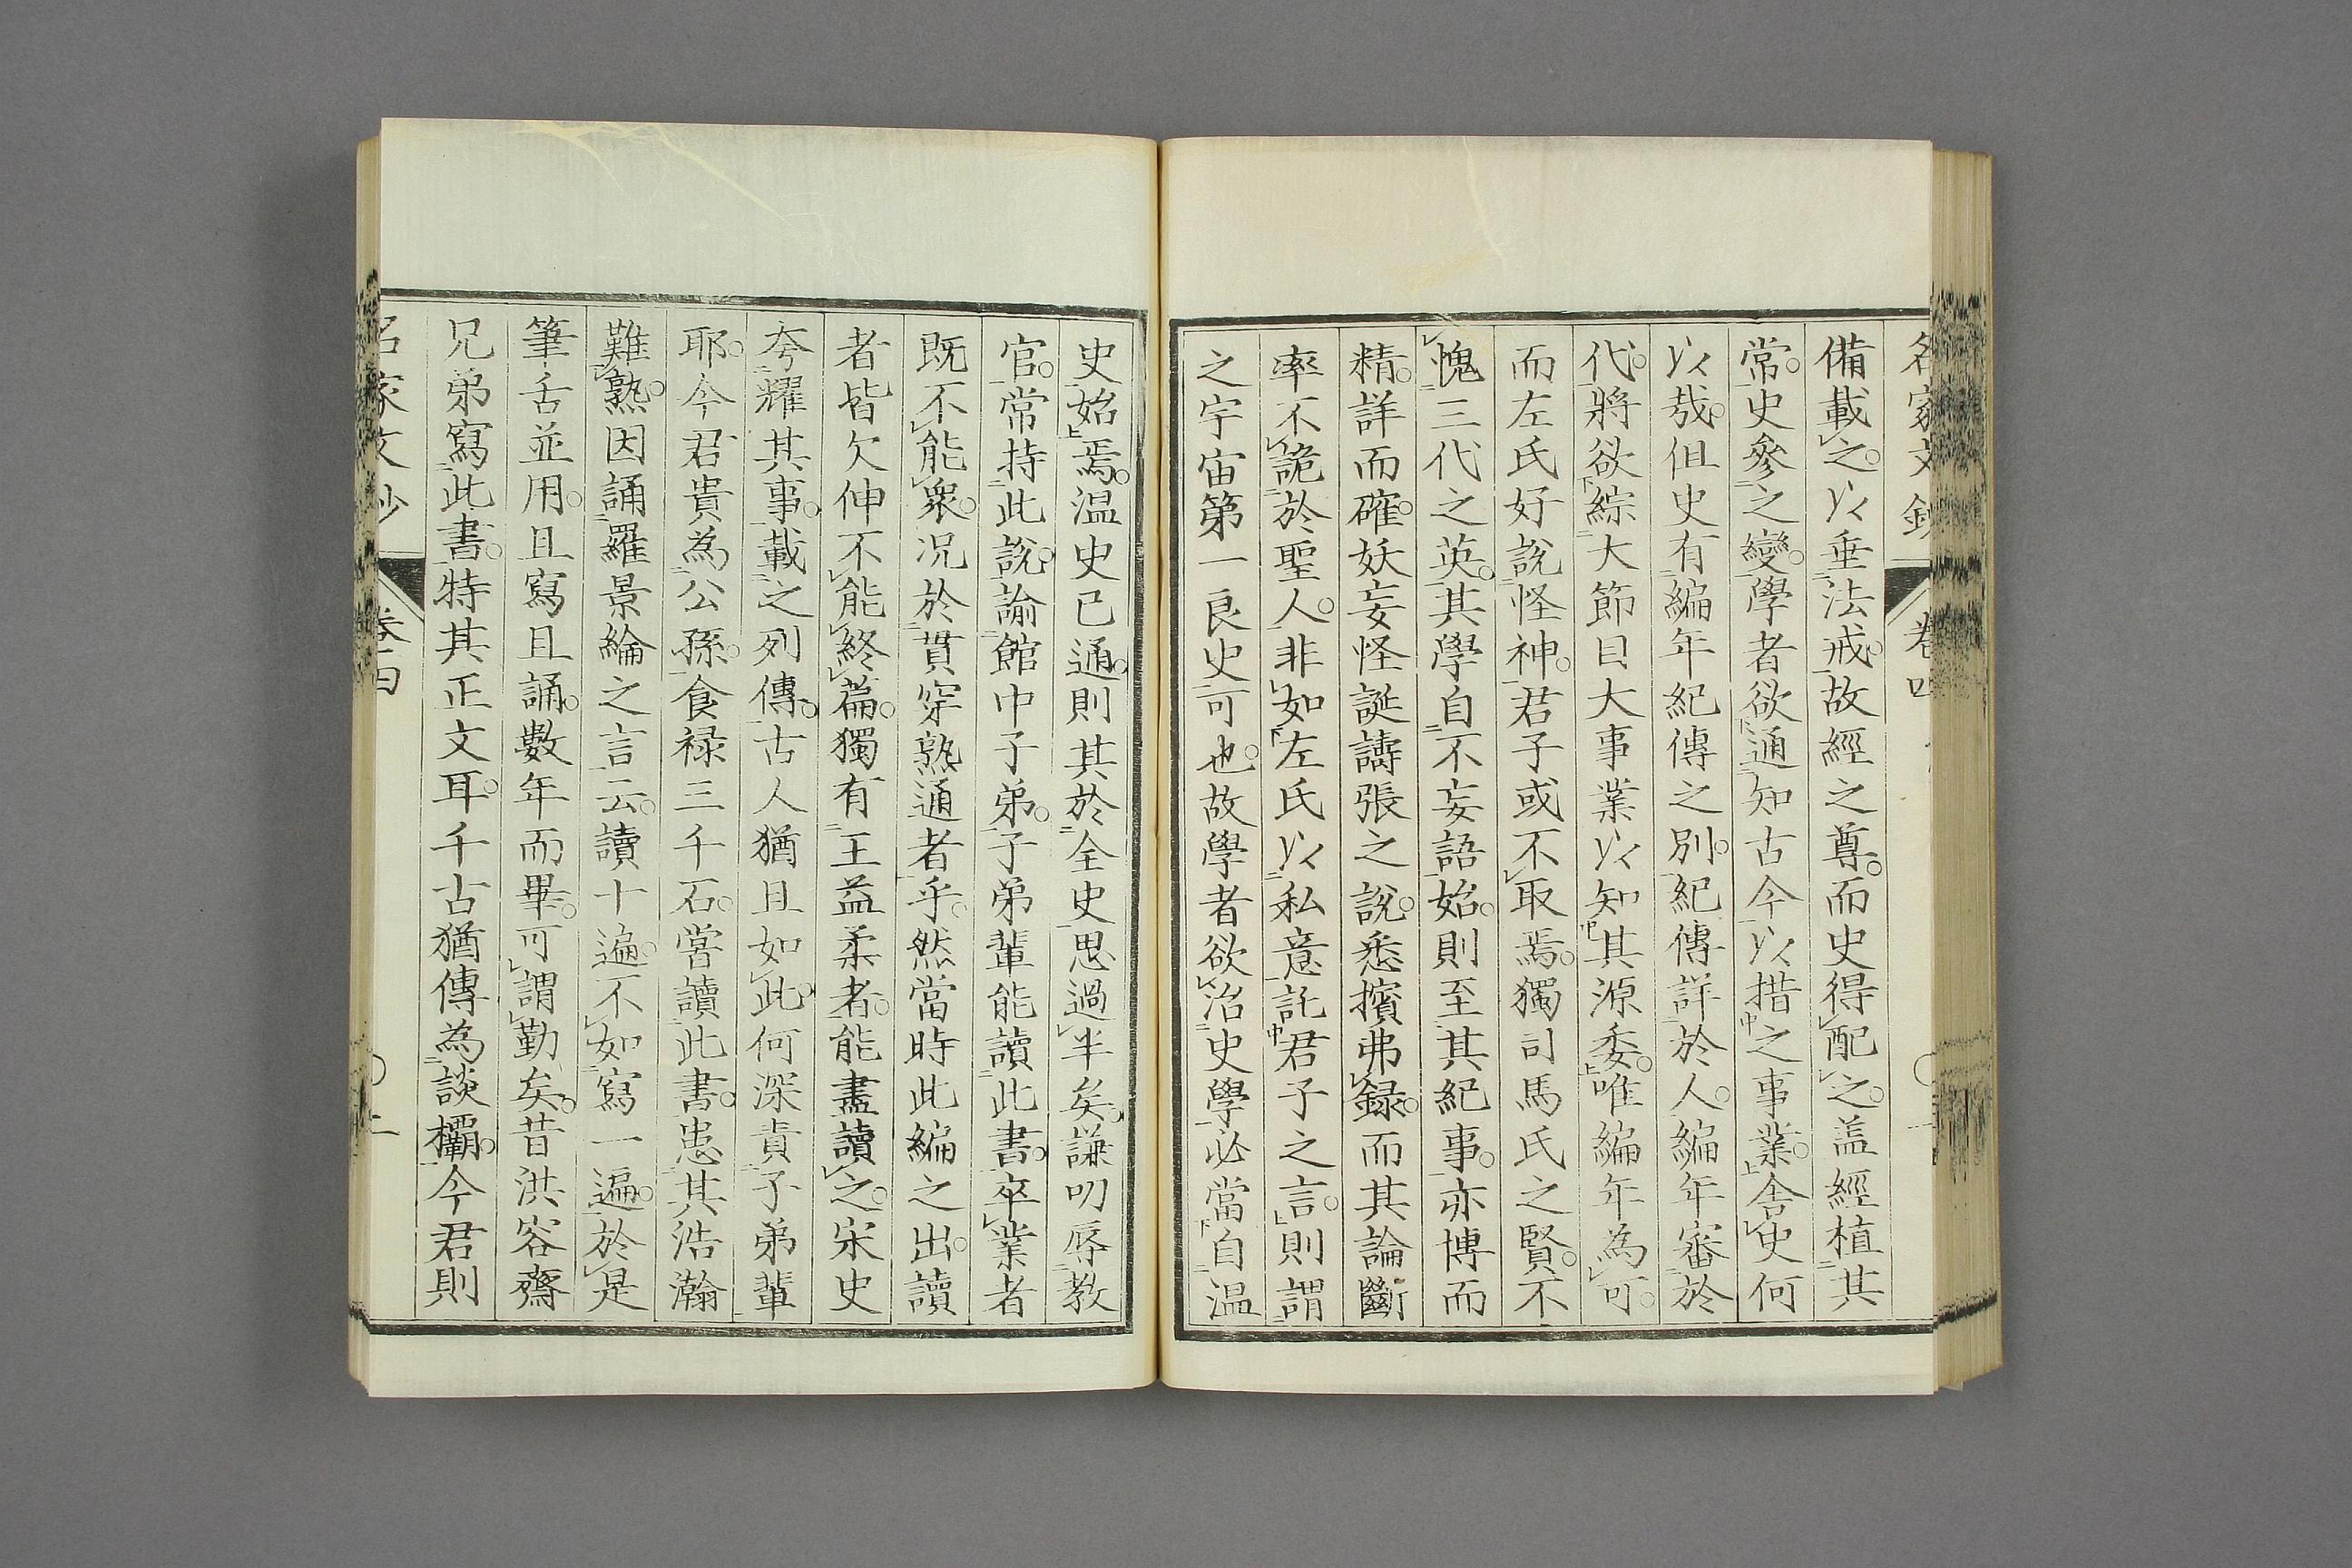 名家文鈔 卷四
備載之。以垂法戒。故經之尊。而史得配之。盖經植其
常。史參之變。學者欲通知古今以措之事業。舍史何
以哉。但史有編年紀傳之別。紀傳詳於人。編年審於
代。將欲綜大節目大事業以知其源委。唯編年為可。
而左氏好說怪神。君子或不取焉。獨司馬氏之賢。不
愧三代之英。其學自不妄語始。則至其紀事。亦博而
精。詳而確。妖妄怪誕譸張之說。悉擯弗録。而其論斷
率不詭於聖人。非如左氏以私意託君子之言。則謂
之宇宙第一良史可也。故學者欲治史學必當自温
史始焉。温史已通。則其於全史思過半矣。謙叨辱教
官。常持此說。諭館中子弟。子弟輩能讀此書。卒業者
既不能衆。况於貫穿熟通者乎。然當時此編之出。讀
者皆欠伸不能終篇。獨有王益柔者。能盡讀之。宋史
夸耀其事。載之列傳。古人猶且如此。何深責子弟輩
耶。今君貴為公孫。食禄三千石。嘗讀此書。患其浩瀚
難熟。因誦羅景綸之言云。讀十遍。不如寫一遍。於是
筆舌並用。且寫且誦。數年而畢。可謂勤矣。昔洪容齋
兄弟寫此書。特其正文耳。千古猶傳為談欛。今君則
名家文鈔 卷四